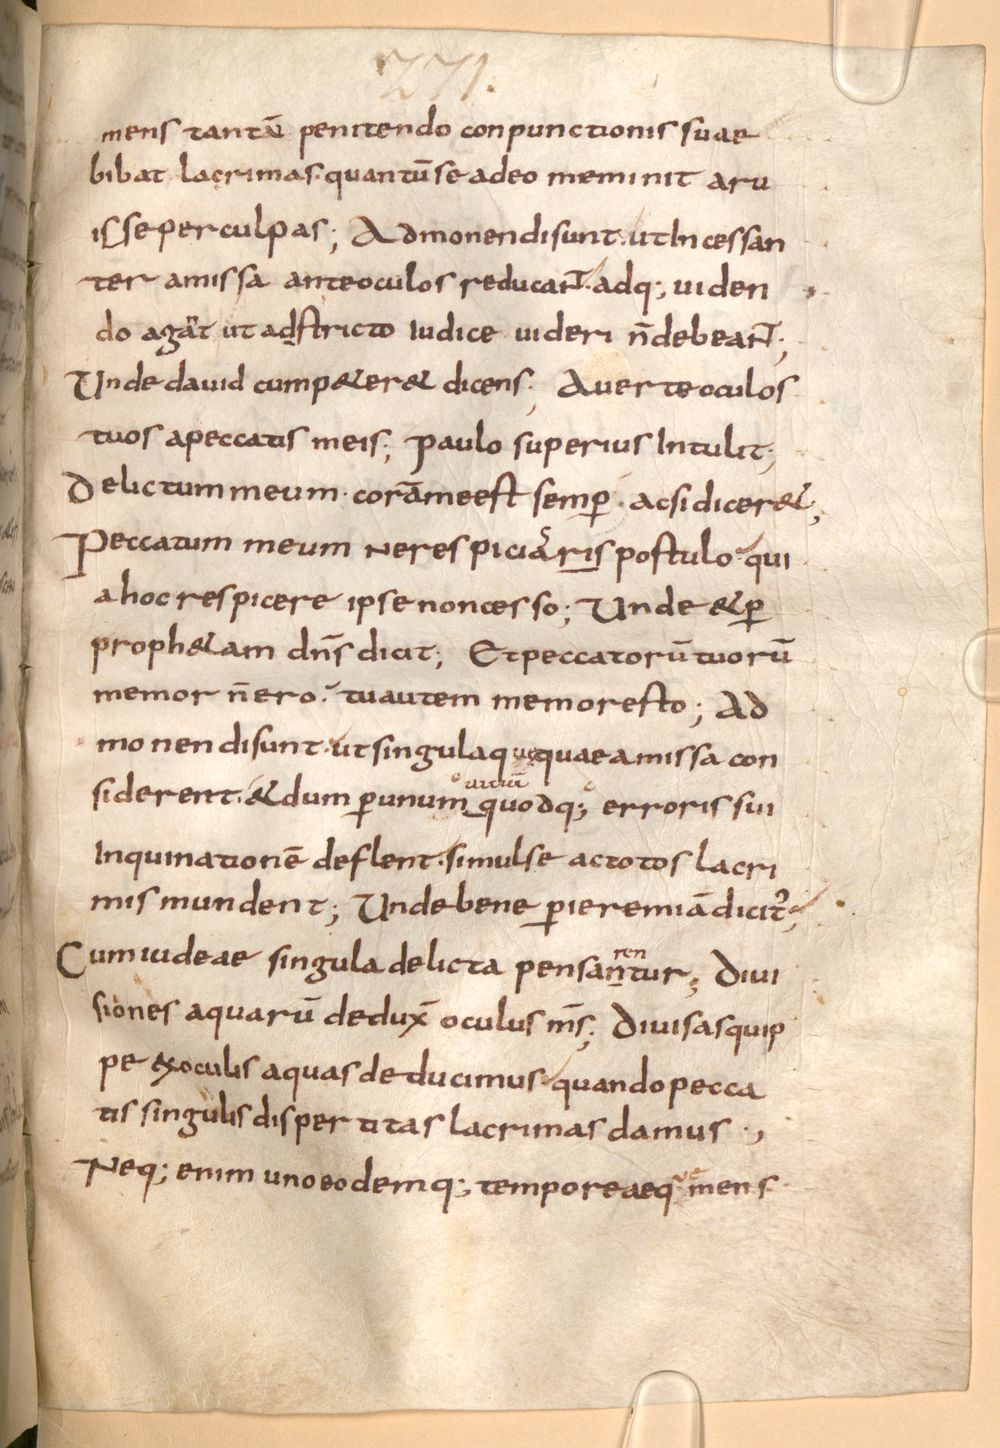 271.
mens tantā penitendo conpunctionis suae
bibat lacrimas. quantū se adeo meminit aru
isse per culpas; Admonendi sunt. ut Incessan
ter amissa ante oculos reducant. adq; uiden
do agāt ut adstricto Iudice uideri n̄ debeant;
Unde dauid cum p&er& dicens; Auerte oculos
tuos a peccatis meis; paulo superius Intulit;
Delictum meum. corā me est semp̄. ac si dicer&;
Peccatum meum ne respiciaris postulo. qui
a hoc respicere ipse non cesso; Unde & p̄
proph&am dn̄s dicit; Et peccatorū tuorū
memor n̄ ero. tu autem memor esto; Ad
monendi sunt. ut singula quęquae amissa con
siderent. & dum p̄ unum quodq; erroris sui
Inquinationē deflent. simul se ac totos lacri
mis mundent; Unde bene p̄ ieremiā dicit᷒;
Cum iudeae singula delicta pensarentur; Diui
siones aquarū dedux̄ oculus m̄s; Diuisas quip
pe ex oculis aquas deducimus. quando pecca
tis singulis dispertitas lacrimas damus.,
Neq; enim uno eodemq; tempore aeque mens